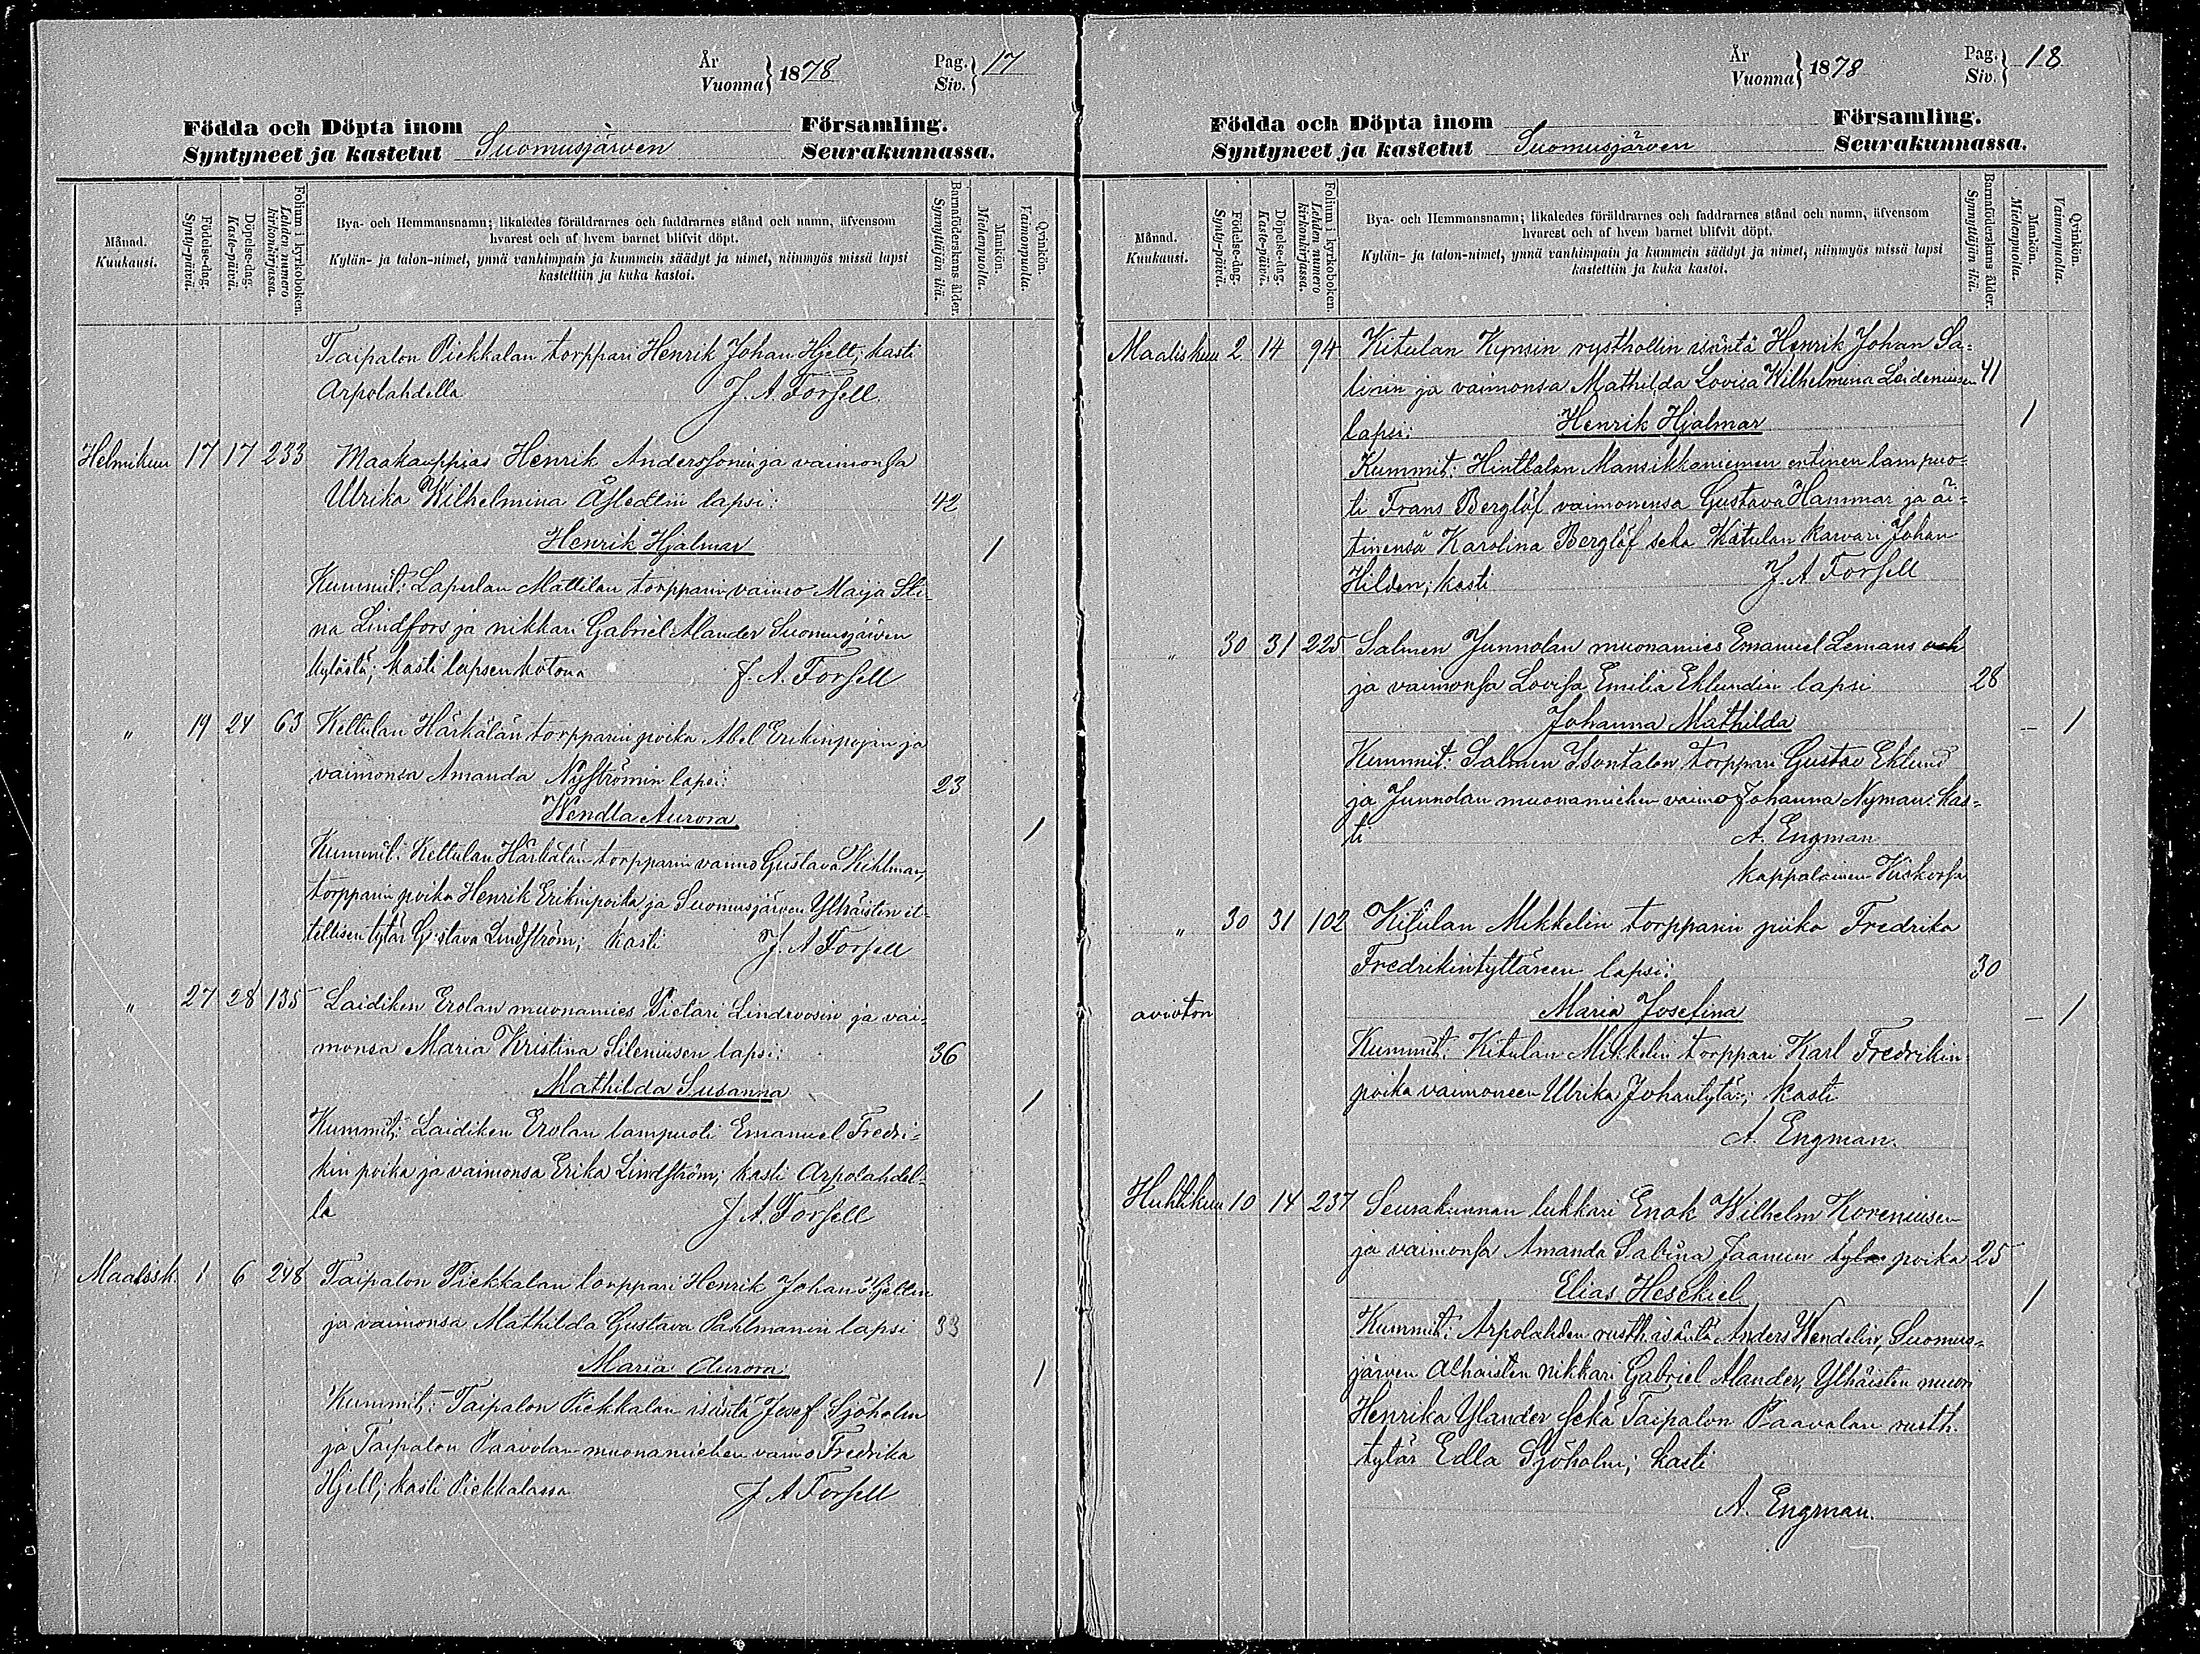 År
Vuonna } 1878
Pag.
Siv. } 17
Födda och Döpta inom Församling.
Syntyneet ja kastetut Suomusjärven Seurakunnassa.
Månad.
Kuukausi.
Födelse-dag.
Synty-päivä.
Döpelse-dag.
Kaste-päivä.
Folium i kyrkoboken.
Lehden numero
kirkonkirjassa.
Bya- och Hemmansnamn; likaledes föräldrarnes och faddrarnes stånd och namn, äfvensom
hvarest och af hvem barnet blifvit döpt.
Kylän- ja talon-nimet, ynnä vanhimpain ja kummein säädyt ja nimet, niinmyös missä lapsi
kastettiin ja kuka kastoi.
Barnaföderskans ålder.
Synnyttäjän ikä.
Mankön.
Miehenpuolla.
Qvinkön.
Vaimonpuolla.
Taipalon Piekkalan torppari Henrik Johan Hjelt; kasti
Arpolahdella J. A. Forsell.
Helmikuu 17 17 233 Maakauppias Henrik Anderssonin ja vaimonsa
Ulrika Wilhelmina lapsi: 42
Henrik Hjalmar 1
Kummit: Lapulan Mattilan torpparin vaimo Maija Sti-
na Lindfors ja nikkari Gabriel Alander Suomusjärven
kylästä; kasti lapsen kotona J. A. Forsell
" 19 24 63 Kettulan Härkälän torpparin poika Abel Erikinpojan ja
vaimonsa Amanda Nyströmin lapsi: 23
Wendla Aurora 1
Kummit: Kettulan Härkälän torpparin vaimo Gustava Kihlman,
torpparin poika Henrik Erikinpoika ja Suomusjärven Ylhäisten it-
tellisen tytär Gustava Lindström; kasti J. A. Forsell
" 27 28 135 Laidiken Erolan muonamies Pietari Lindroosin ja vai-
monsa Maria Kristina Sileniusen lapsi: 36
Mathilda Susanna 1
Kummit: Laidiken Erolan lampuoti Emanuel Fredri-
kin poika ja vaimonsa Erika Lindström; kasti Arpolahdel-
la J. A. Forsell
Maalisk. 1 6 248 Taipalon Piekkalan torppari Henrik Johan Hjeltin
ja vaimonsa Mathilda Gustava Pahlmanin lapsi 33
Maria Aurora 1
Kummit: Taipalon Piekkalan isäntä Josef Sjöholm
ja Taipalon Paavolan muonamiehen vaimo Fredrika
Hjelt; kasti Piekkalassa J A Forsell
År
Vuonna } 1878
Pag.
Siv. } 18
Födda och Döpta inom Församling.
Syntyneet ja kastetut Suomusjärven Seurakunnassa.
Månad.
Kuukausi.
Födelse-dag.
Synty-päivä.
Döpelse-dag.
Kaste-päivä.
Folium i kyrkoboken.
Lehden numero
kirkonkirjassa.
Bya- och Hemmansnamn; likaledes föräldrarnes och faddrarnes stånd och namn, äfvensom
hvarest och af hvem barnet blifvit döpt.
Kylän- ja talon-nimet, ynnä vanhimpain ja kummein säädyt ja nimet, niinmyös missä lapsi
kastettiin ja kuka kastoi.
Barnaföderskans ålder.
Synnyttäjän ikä.
Mankön.
Miehenpuolla.
Qvinkön.
Vaimonpuolla.
Maaliskuu 2 14 94 Kitulan Kynsin rysthollin isäntä Henrik Johan Sa-
linin ja vaimonsa Mathilda Lovisa Wilhelmina Leideniusen 41
lapsi: Henrik Hjalmar 1
Kummit: Hintkalan Mansikkaniemen entinen lampuo-
ti Frans Berglöf vaimonensa Gustava Hammar ja äi-
tinensä Karolina Berglöf sekä Kitulan karvari Johan
Hilden; kasti J A Forsell
" 30 31 225 Salmen Junnolan muonamies Emanuel Lemans och
ja vaimonsa Lovisa Emilia Eklundin lapsi 28
Johanna Mathilda – 1
Kummit: Salmen Isontalon torppari Gustav Eklund
ja Junnolan muonamiehen vaimo Johanna Nyman: kas-
ti A. Engman
kappalainen Kiskossa
" 30 31 102 Kitulan Mikkelin torpparin piika Fredrika
Fredrikintyttären lapsi: 30
avioton Maria Josefina – 1
Kummit: Kitulan Mikkelin torppari Karl Fredrikin-
poika vaimoneen Ulrika Johantytär; kasti
A. Engman.
Huhtikuu 10 14 237 Seurakunnan lukkari Enok Wilhelm Koreniusen
ja vaimonsa Amanda Sabina Jaanuun tyla poika 25
Elias Hesekiel 1
Kummit: Arpolahden rusth isäntä Anders Wendelin, Suomus-
järven Alhaisten nikkari Gabriel Alander, Ylhäisten muori
Henrika Ylander sekä Taipalon Paavolan rusth.
tytär Edla Sjöholm; kasti
A. Engman.